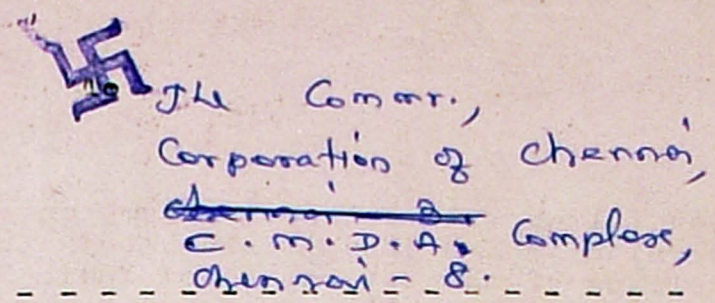 The Commr.,
Corporation of Chennai,
C.M.D.A. Complex,
Chennai - 8.